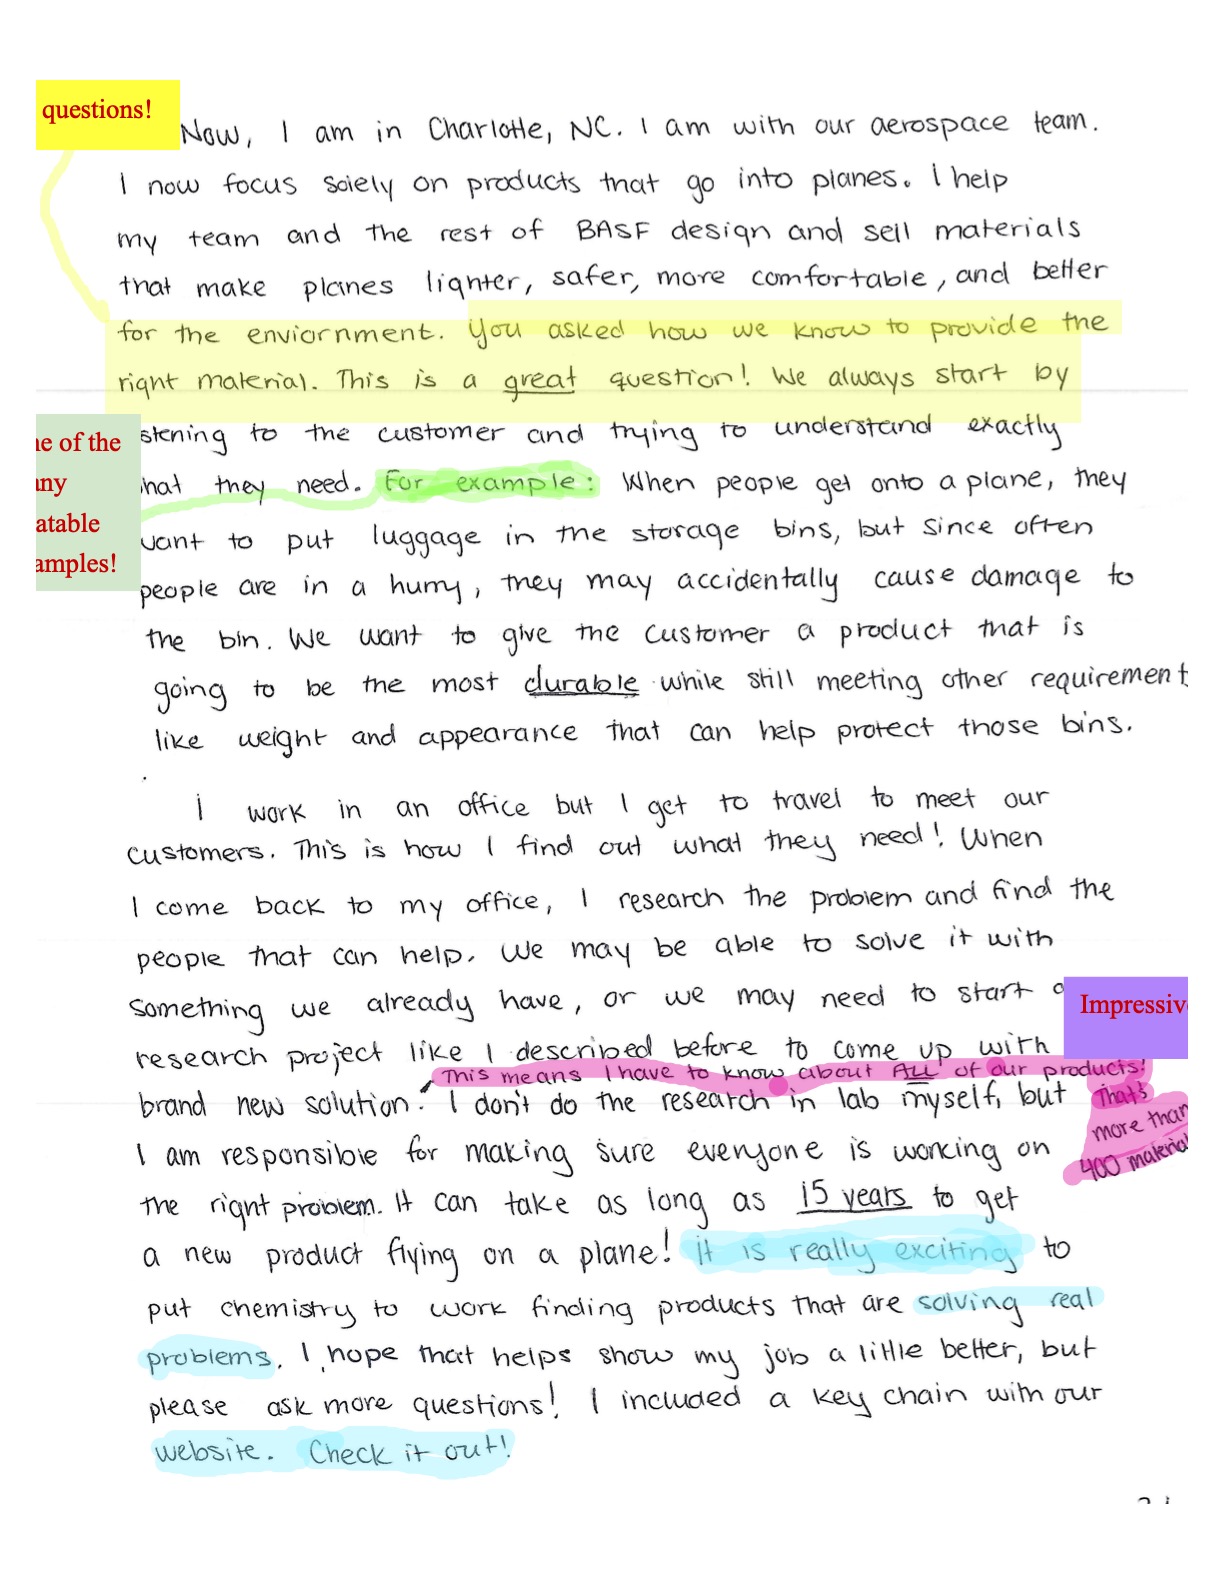 questions!
Now, I am in Charlotte, NC. I am with our aerospace team.
I now focus solely on products that go into planes. I help
my team and the rest of BASF design and sell materials
that make planes lighter, safer, more comfortable, and better
for the enviornment. You asked how we know to provide the
right material. This is a great question! We always start by
stening to the customer and trying to understand exactly
hat they need. For example: When people get onto a plane, they
want to put luggage in the storage bins, but since often
people are in a hurry, they may accidentally cause damage to
the bin. We want to give the customer a product that is
going to be the most durable while still meeting other requirement
like weight and appearance that can help protect those bins.
ne of the
any
atable
amples!
I work in an office but I get to travel to meet our
customers. This is how I find out what they need! When
I come back to my office, I research the problem and find the
people that can help. We may be able to solve it with
something we already have, or we may need to start a
research project like I described before to come up with
Impressiv
This means I have to know about ALL of our products!
That's
more than
400 material
brand new solution. I don't do the research in lab myself, but
I am responsible for making sure everyone is working on
the right problem. It can take as long as 15 years to get
a new product flying on a plane! It is really exciting to
put chemistry to work finding products that are solving real
problems. I hope that helps show my job a little better, but
please ask more questions! I included a key chain with our
website. Check it out!